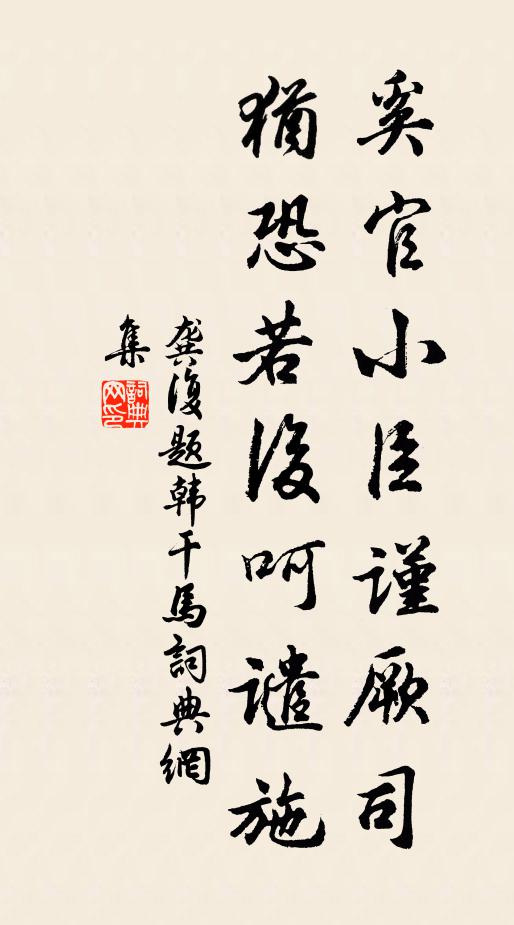 奚官小臣謹厥司
猶恐若後呵譴施
龔復題韩干馬詞典網
集
詞典网印